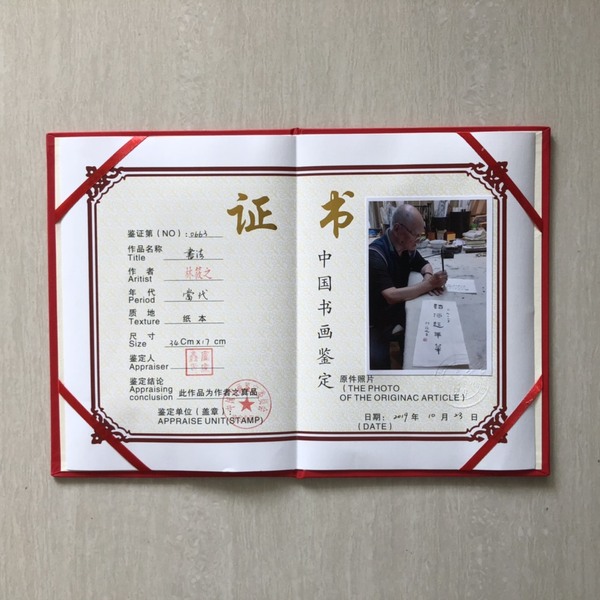 证 书
鉴证第（NO）：0663
作品名称 書法
Title
作 者 林筱之
Aritist
年 代 當代
Period
质 地 纸 本
Texture
尺 寸 34Cm x 17 cm
Size
鉴定人
Appraiser
鉴定结论
Appraising
conclusion 此作品为作者之真品
鉴定单位（盖章）：
APPRAISE UNIT(STAMP)
中国书画鉴定
原件照片
（THE PHOTO
OF THE ORIGINAC ARTICLE）
日期：2019 年 10 月 23 日
（DATE）